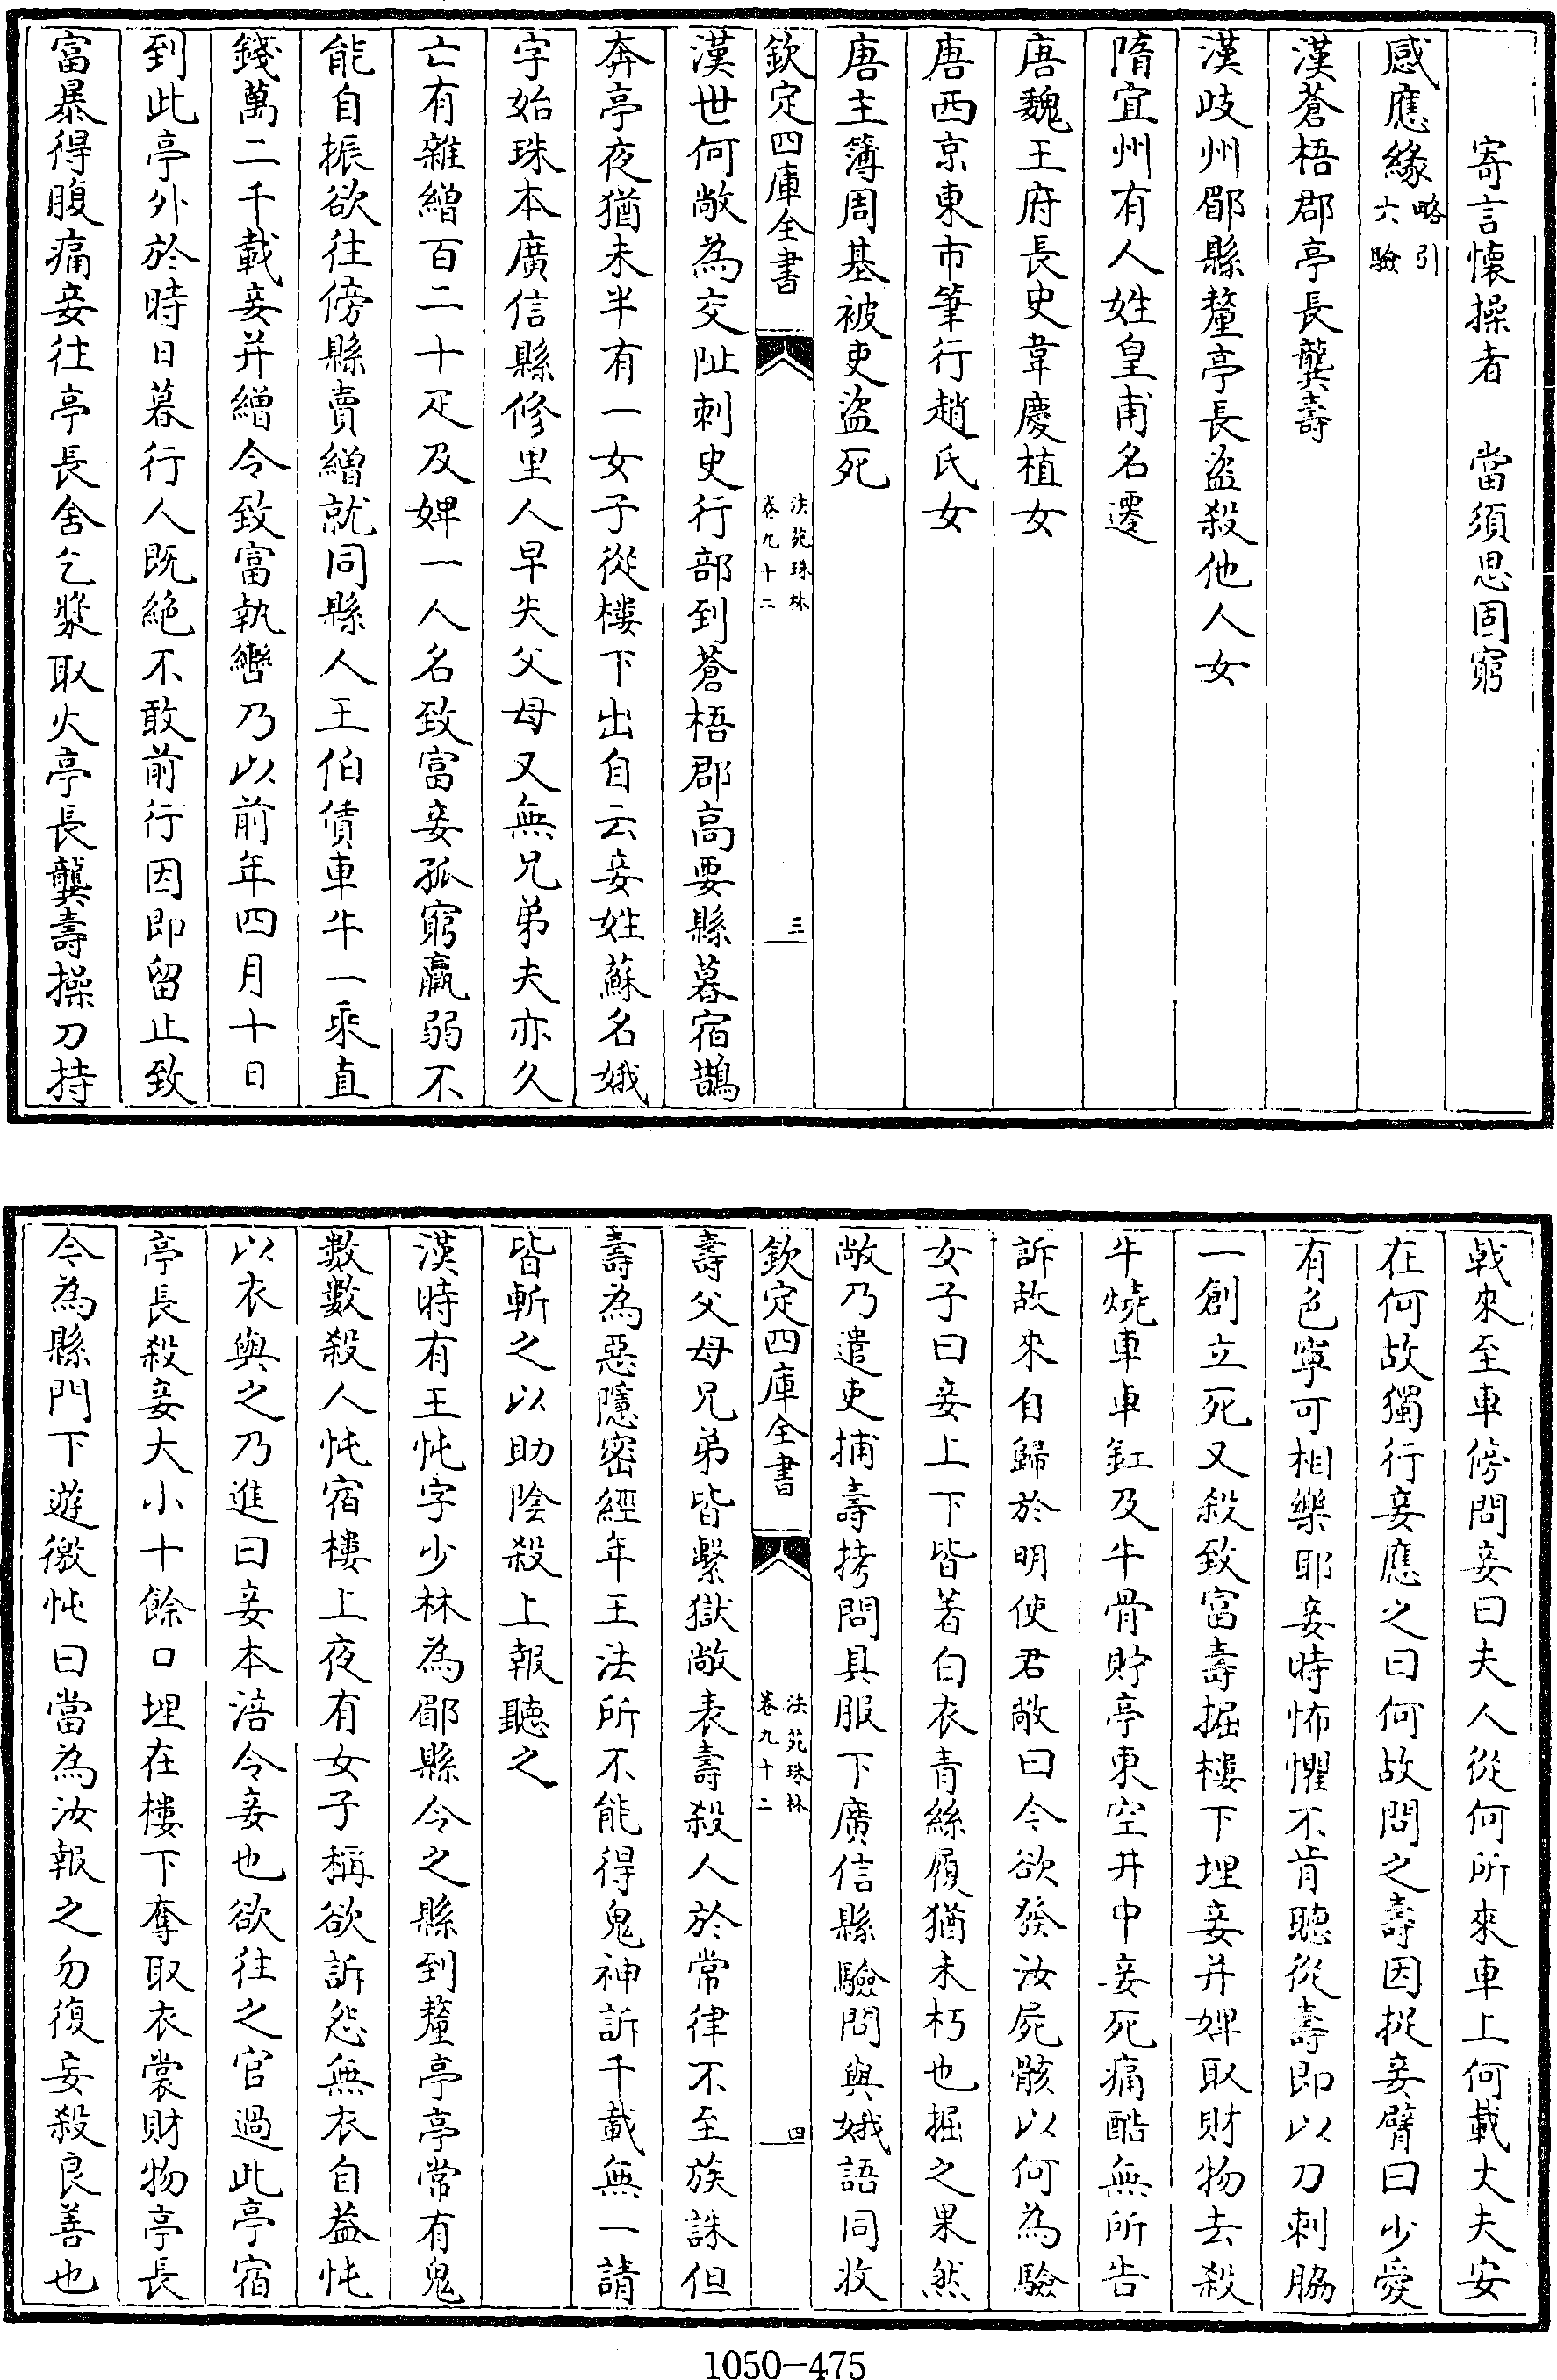 寄言懷操者　當須思固窮
感應緣略引六驗
漢蒼梧郡亭長龔壽
漢岐州郿縣釐亭長盜殺他人女
隋宜州有人姓皇甫名遷
唐魏王府長史韋慶植女
唐西京東市筆行趙氏女
唐主簿周基被吏盜死
欽定四庫全書　法苑珠林卷九十二　三
漢世何敞為交阯刺史行部到蒼梧郡高要縣暮宿鵲
奔亭夜猶未半有一女子從樓下出自云妾姓蘇名娥
字始珠本廣信縣修里人早失父母又無兄弟夫亦久
亡有雜繒百二十疋及婢一人名致富妾孤窮羸弱不
能自振欲往傍縣賣繒就同縣人王伯賃車牛一乘直
錢萬二千載妾并繒令致富執轡乃以前年四月十日
到此亭外於時日暮行人既絶不敢前行因即留止致
富暴得腹痛妾往亭長舍乞漿取火亭長龔壽操刀持
戟來至車傍問妾曰夫人從何所來車上何載丈夫安
在何故獨行妾應之曰何故問之壽因捉妾臂曰少愛
有色寧可相樂耶妾時怖懼不肯聽從壽即以刀刺脇
一創立死又殺致富壽掘樓下埋妾并婢取財物去殺
牛燒車車釭及牛骨貯亭東空井中妾死痛酷無所告
訴故來自歸於明使君敞曰今欲發汝屍骸以何為驗
女子曰妾上下皆著白衣青絲履猶未朽也掘之果然
敞乃遣吏捕壽拷問具服下廣信縣驗問與娥語同收
欽定四庫全書　法苑珠林卷九十二　四
壽父母兄弟皆繫獄敞表壽殺人於常律不至族誅但
壽為惡隱密經年王法所不能得鬼神訴千載無一請
皆斬之以助陰殺上報聽之
漢時有王忳字少林為郿縣令之縣到釐亭亭常有鬼
數數殺人忳宿樓上夜有女子稱欲訴怨無衣自蓋忳
以衣與之乃進曰妾本涪令妾也欲往之官過此亭宿
亭長殺妾大小十餘口埋在樓下奪取衣裳財物亭長
今為縣門下遊徼忳曰當為汝報之勿復妄殺良善也
1050-475